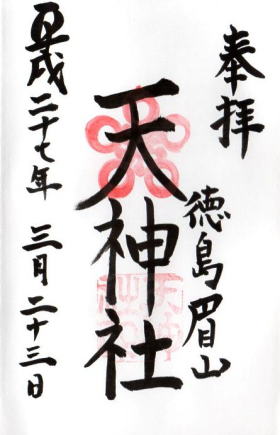 奉拝
徳島眉山
天神社
平成二十七年 三月二十三日